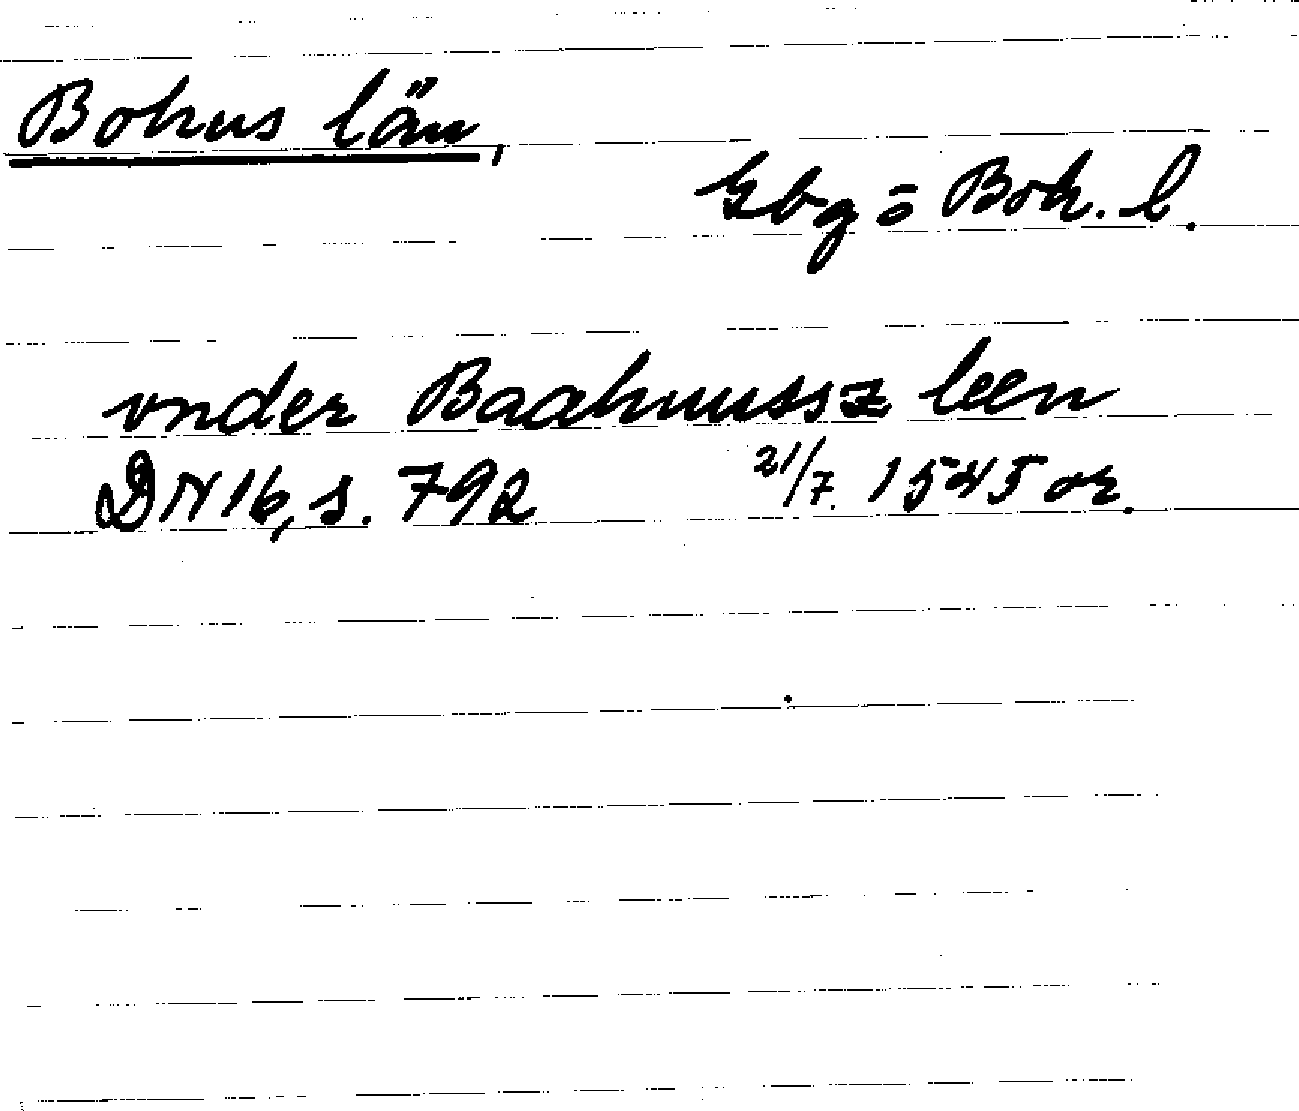 Bohus län,
Gbg o Boh. l.
vnder Baahnussz leen
DN 16, s. 792 21/7. 1545 or.